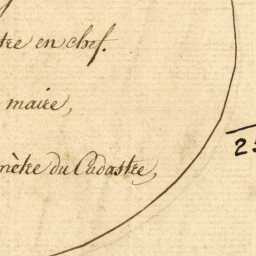 tre en chef.
maire,
mètre du Cadastre,
2